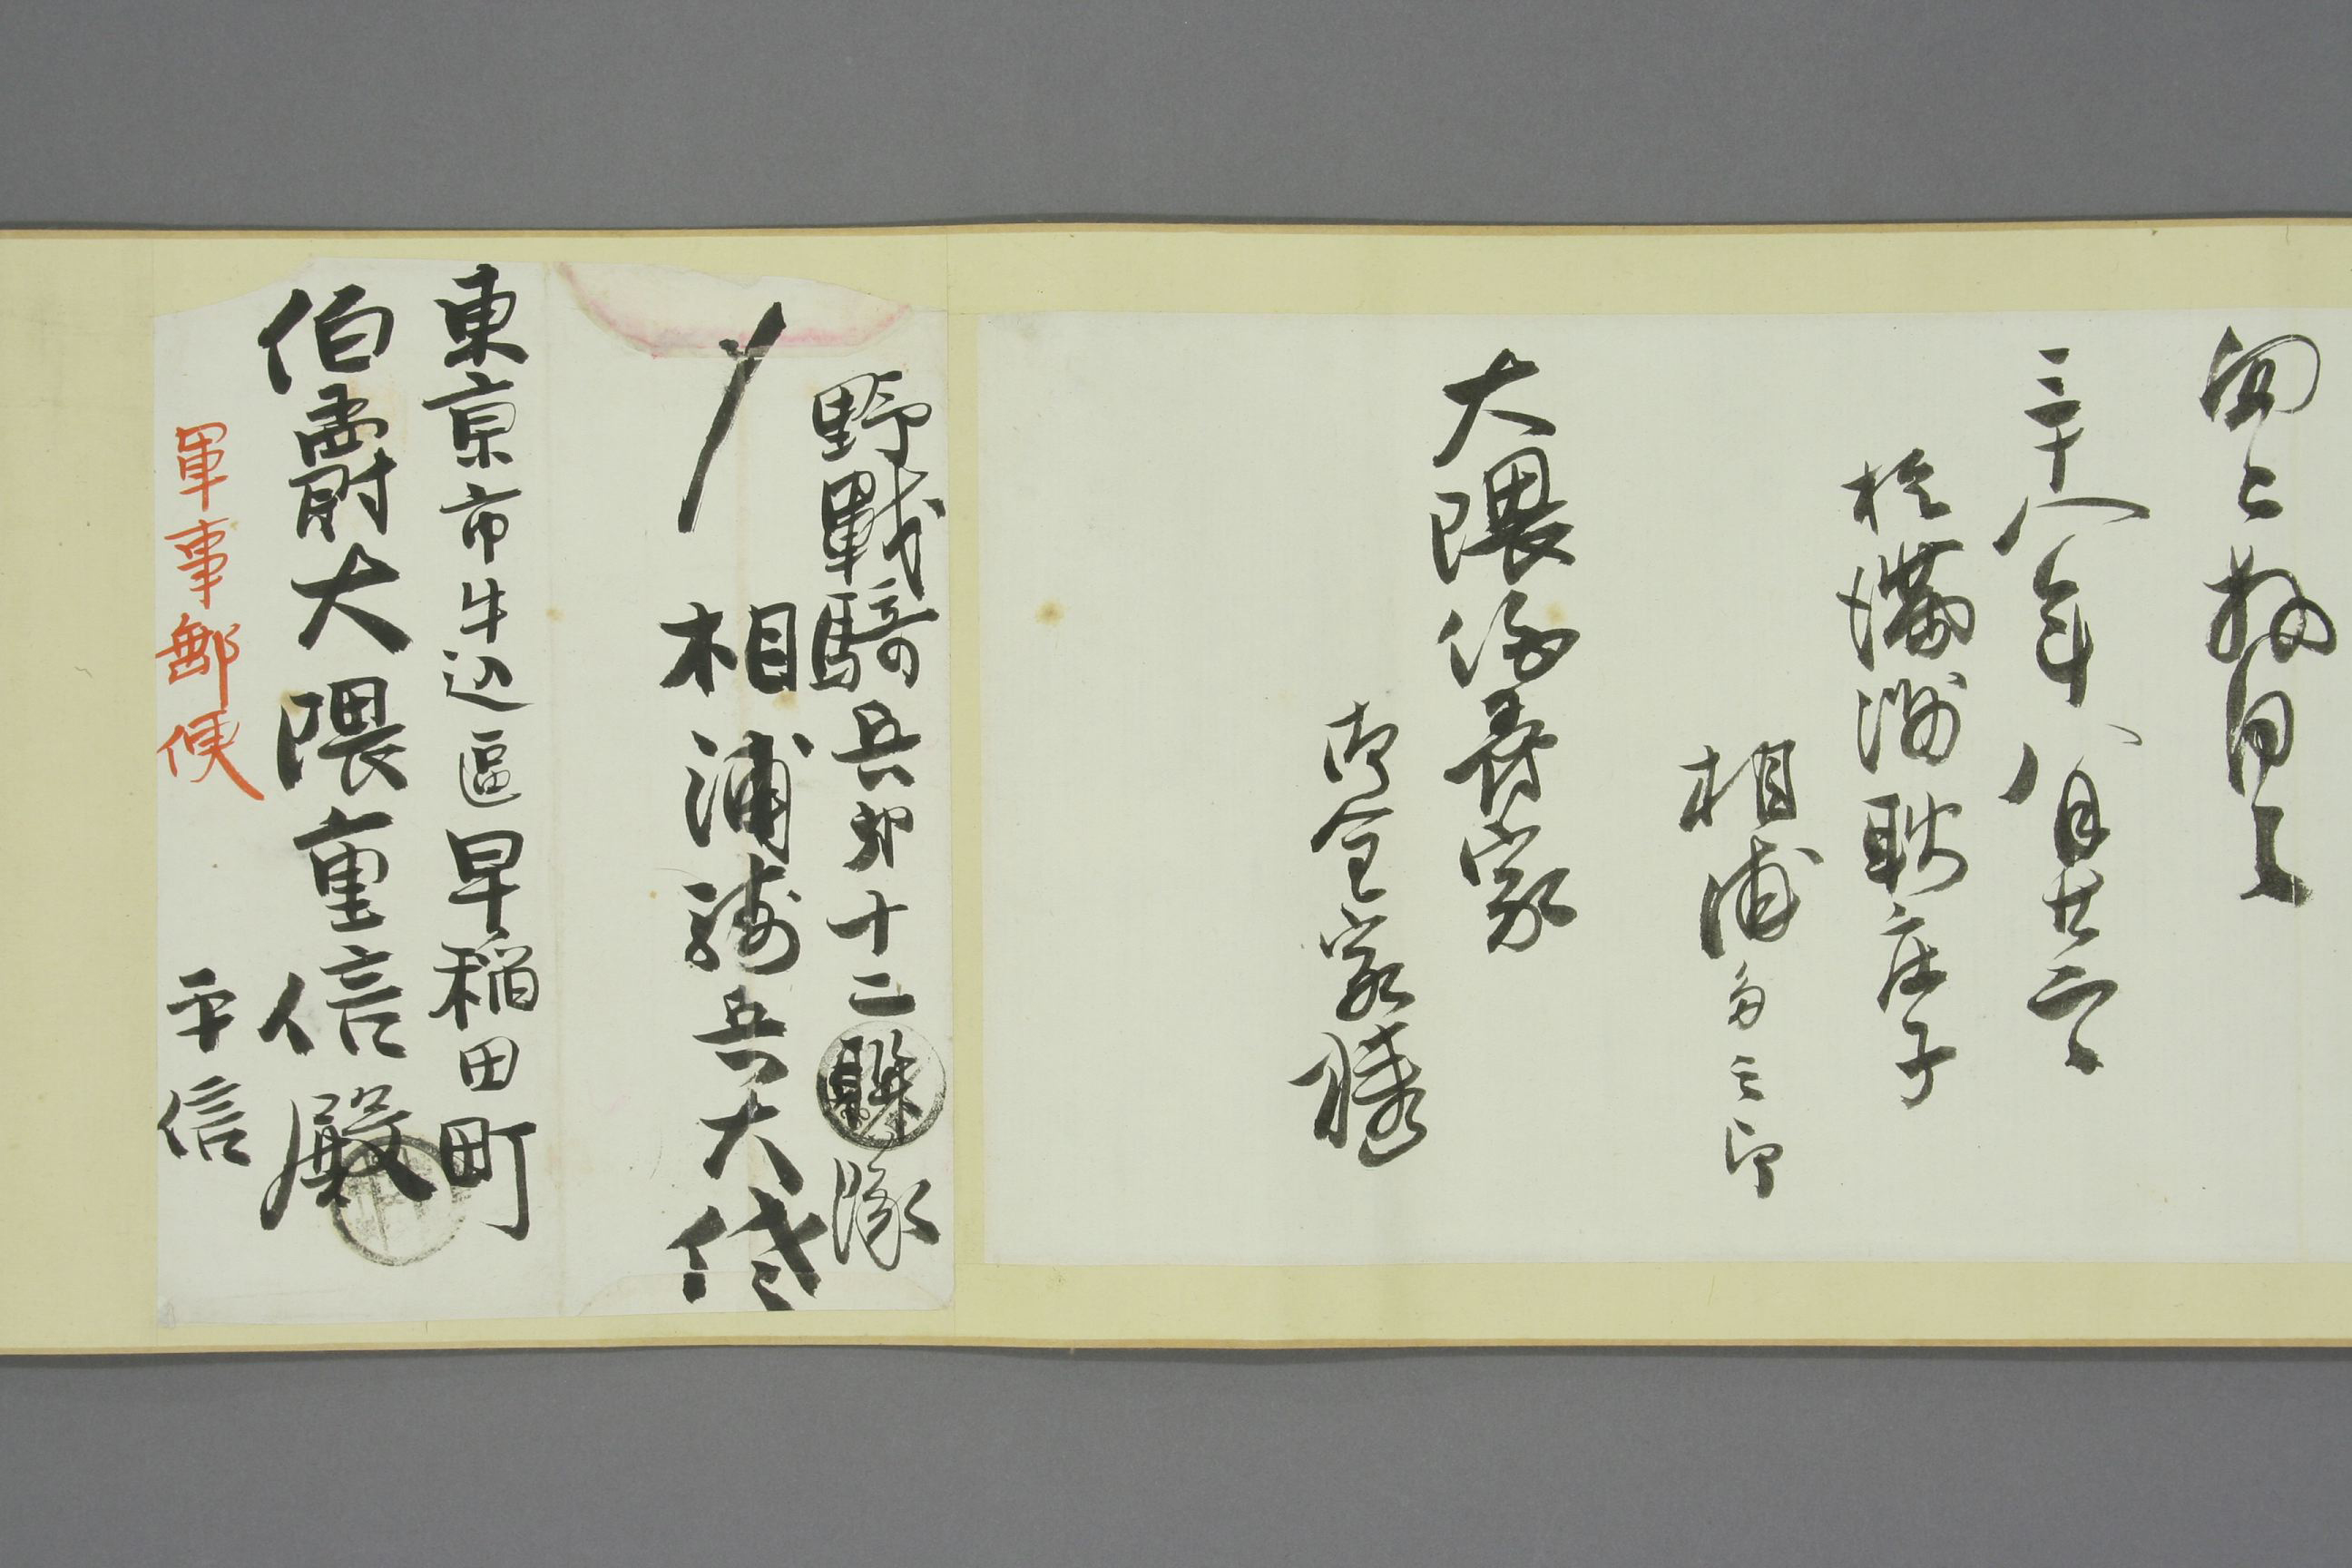 匆々拝具
三十八年八月廿二日
於満洲耿庄子
相浦多三郎
大隈伯爵家
御全家様
野戦騎兵第十二聯隊
相浦騎兵大佐
東京市牛込區早稲田町
伯爵大隈重信殿
軍事郵便
平信